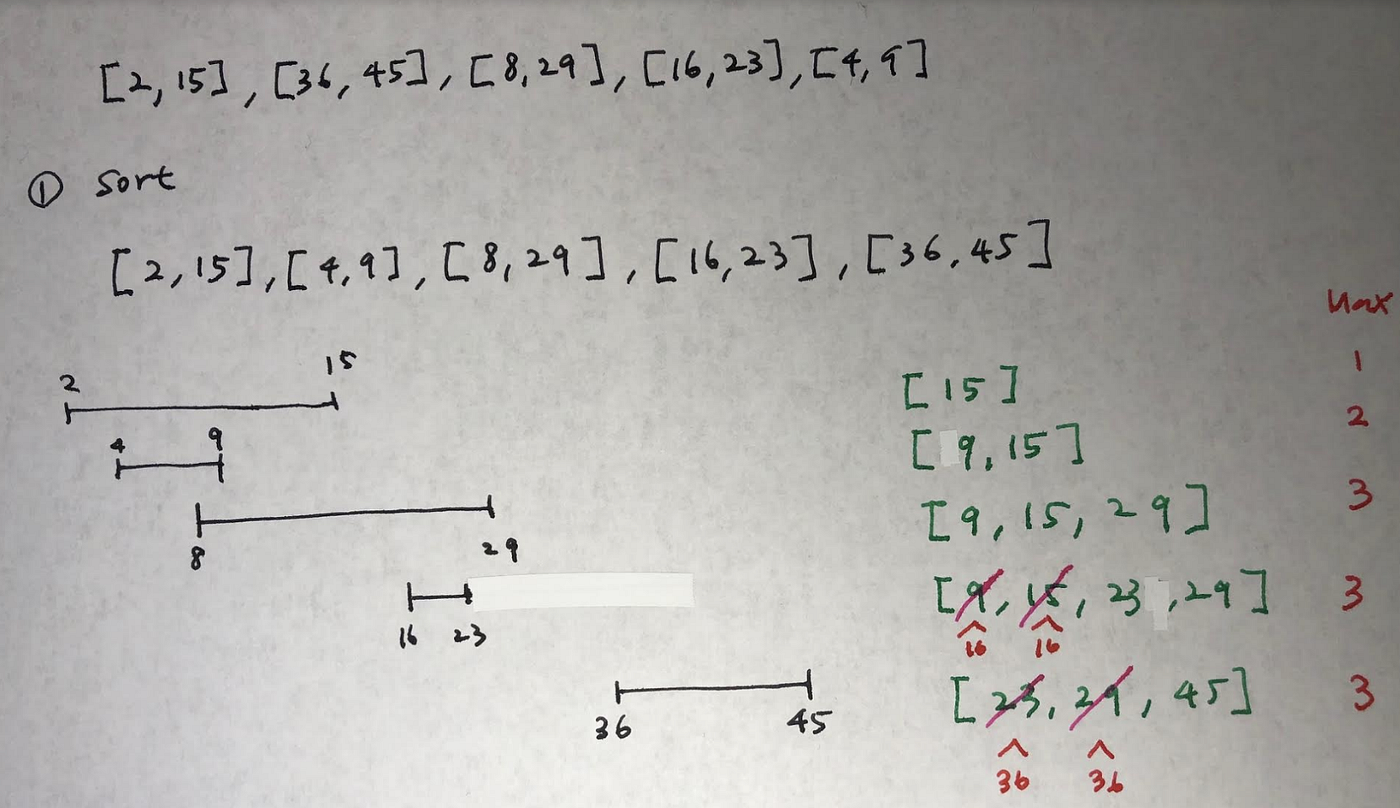 [2, 15], [36, 45], [8, 29], [16, 23], [4, 9]
① Sort
[2, 15], [4, 9], [8, 29], [16, 23], [36, 45]
Max
2 15 [15] 1
4 9 [9, 15] 2
8 29 [9, 15, 29] 3
16 23 [9, 15, 23, 29] 3
^ ^
16 16
36 45 [23, 29, 45] 3
^ ^
36 36